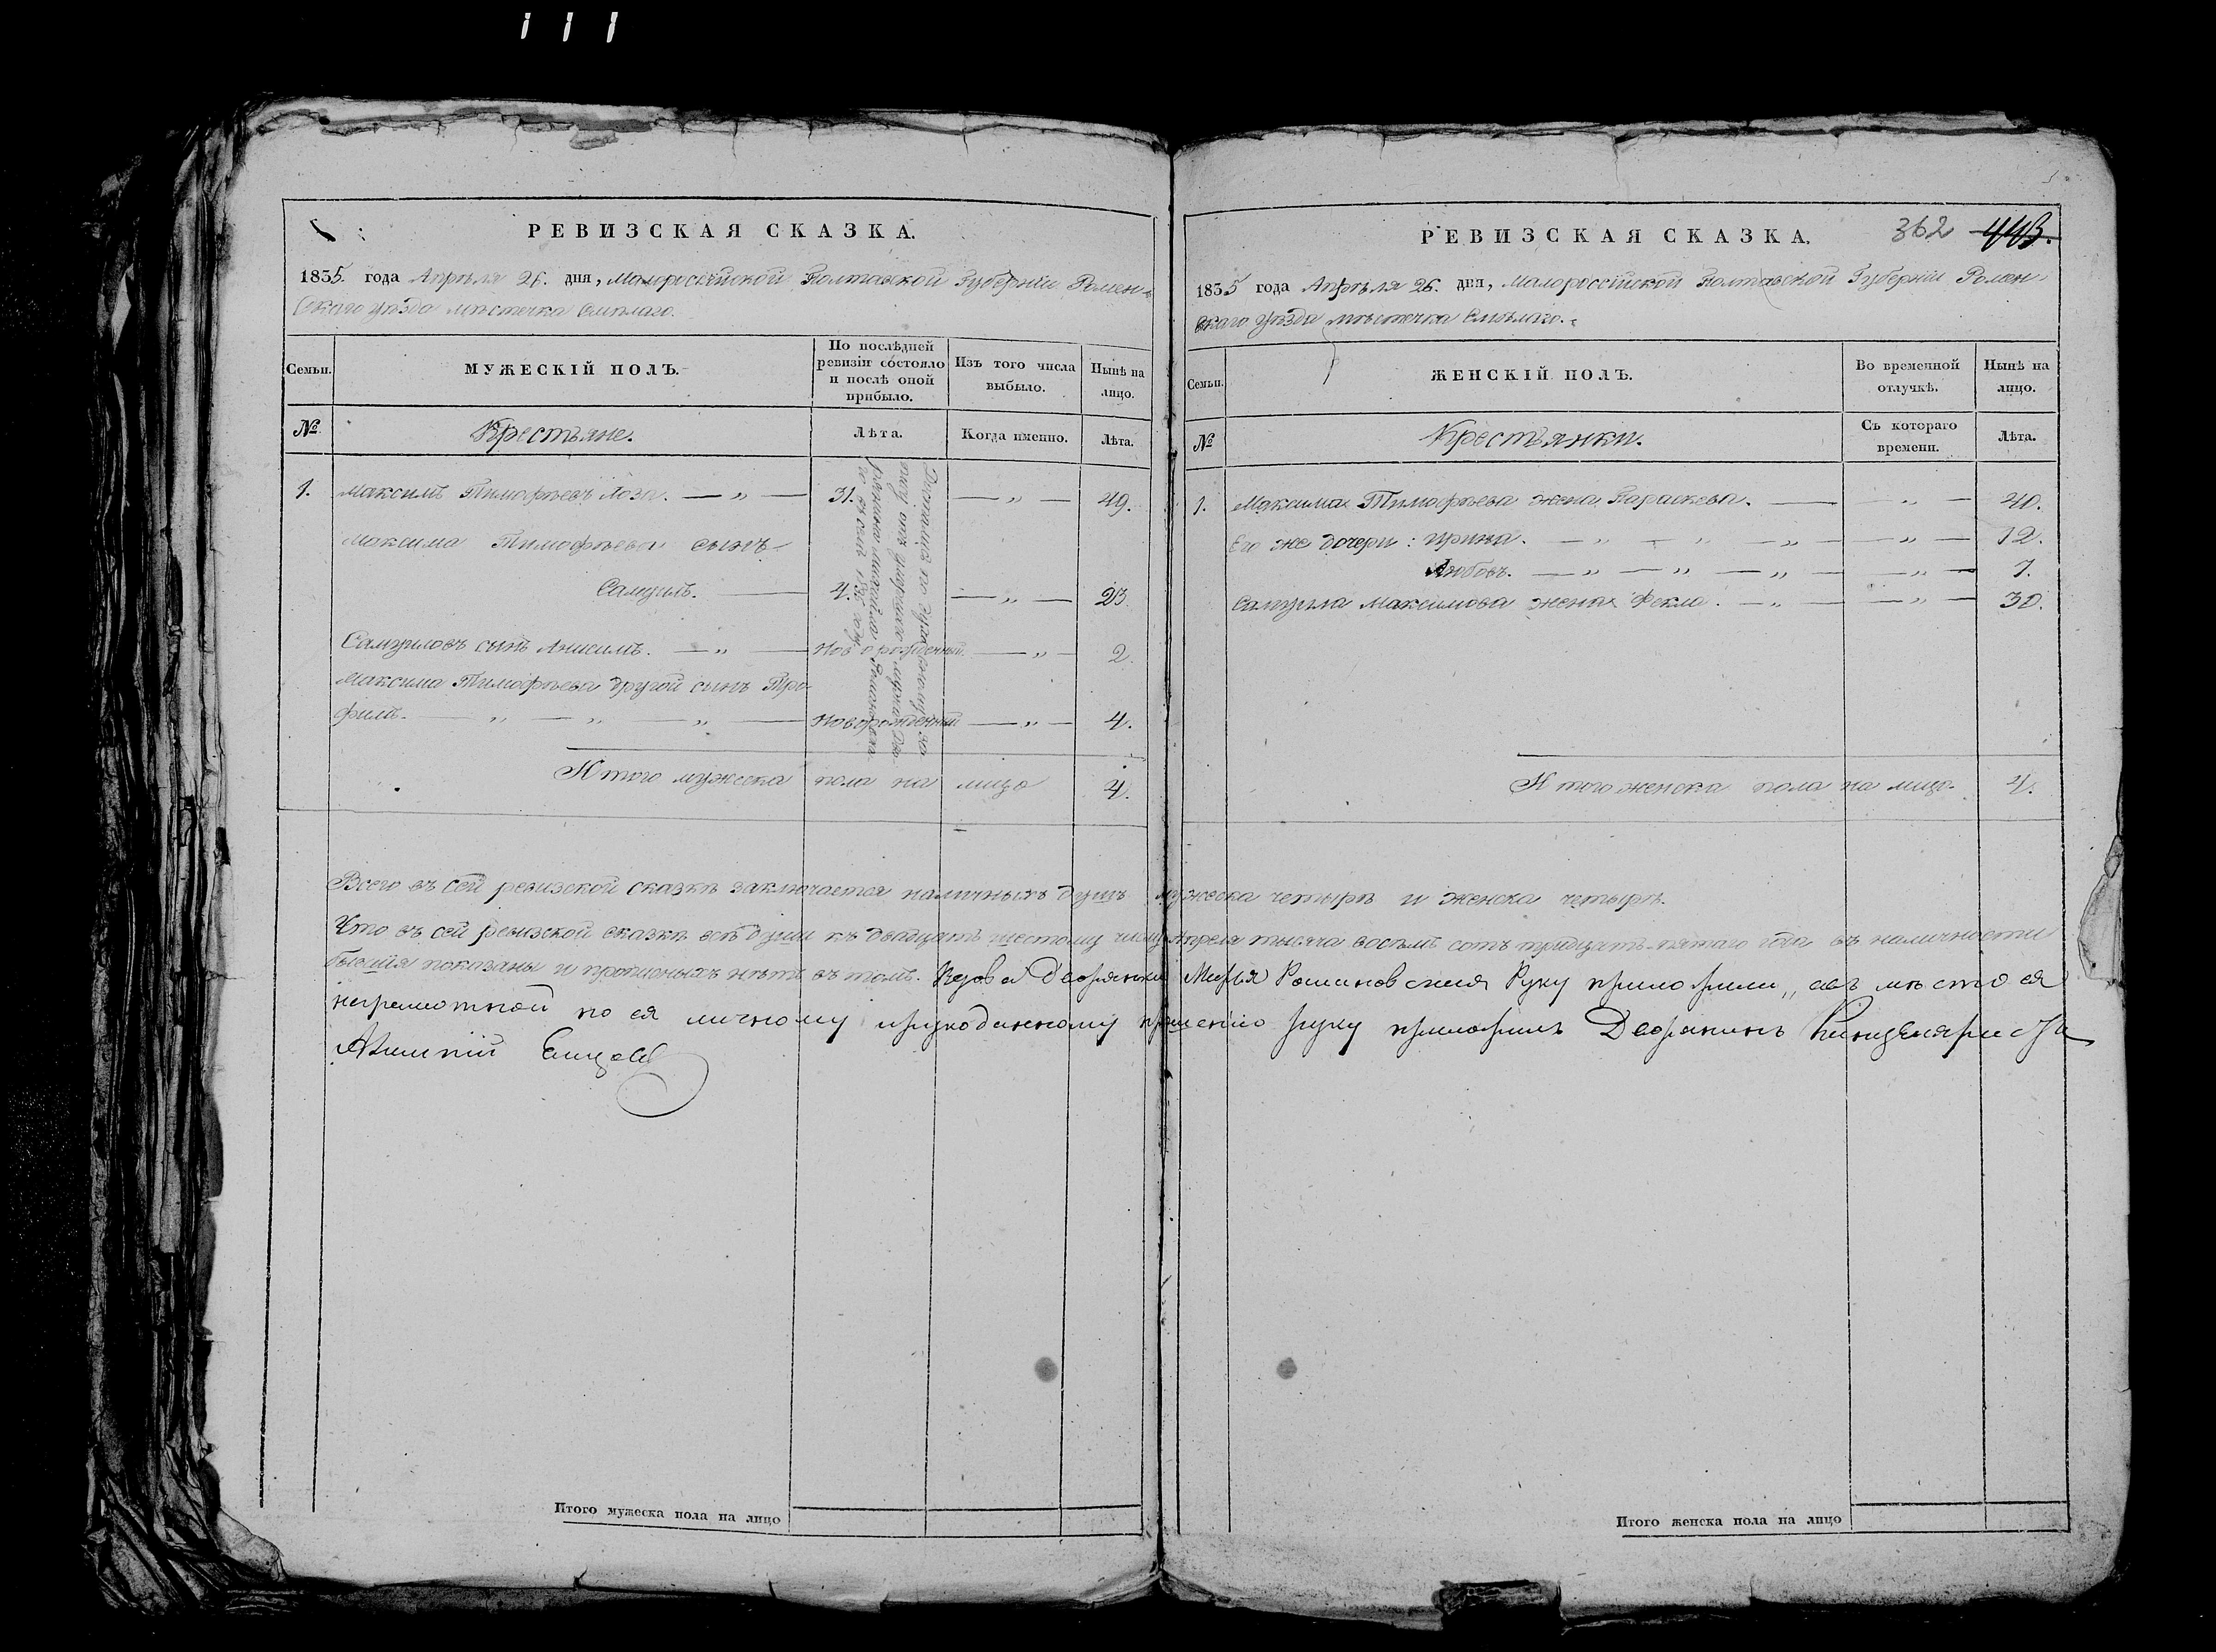 РЕВИЗСКАЯ СКАЗКА.
1835. года Апрѣля 26. дня, Малороссійской Полтавской Губерніи Ромен-
скаго уѣзда мѣстечка Смѣлаго.
Семьи.
МУЖЕСКІЙ ПОЛЪ.
По послѣдней ревизіи состояло и послѣ оной прибыло.
Изъ того числа выбыло.
Нынѣ на лицо.
№
Крестьяне.
Лѣта.
Когда именно.
Лѣта.
1. Максимъ Тимофѣевъ Лоза. — „ — 31. — „ — 49.
Максима Тимофѣева сынъ
Самуилъ. — 4. — „ — 23.
Самуиловъ сынъ Анисимъ. — „ — новорожденный. — „ — 2.
Максима Тимофѣева другой сынъ Тро-
фимъ. — „ — „ — „ — новорожденный — „ — 4.
Итого мужеска пола на лицо 4.
РЕВИЗСКАЯ СКАЗКА.
362 443.
1835 года Апрѣля 26. дня, Малороссійской Полтавской Губерніи Ромен-
скаго уѣзда мѣстечка Смѣлаго.
Семьи.
ЖЕНСКІЙ ПОЛЪ.
Во временной отлучкѣ.
Нынѣ на лицо.
№
Крестьянки.
Съ котораго времени.
Лѣта.
1. Максима Тимофѣева жена Параскева. — „ — 40.
Его же дочери: Ирина. — „ — „ — „ — „ — 12.
Любовь. — „ — „ — „ — „ — 7.
Самуила Максимова жена Фекла. — „ — „ — 30.
Итого женска пола на лицо. 4.
Всего въ сей ревизской сказкѣ заключается наличныхъ душъ мужеска четырѣ и женска четырѣ.
Что въ сей ревизской сказкѣ всѣ души къ двадцать шестому числу Апреля тысяча восемь сотъ тридцать-пятаго года въ наличности
бывшія показаны и прописныхъ нѣтъ въ томъ. Вдова Дворянка Марья руку приложила, а вмѣсто ея
неграмотной по ея личному рукоданному прошенію руку приложилъ Дворянинъ Канцеляристъ
Итого мужеска пола на лицо
Итого женска пола на лицо